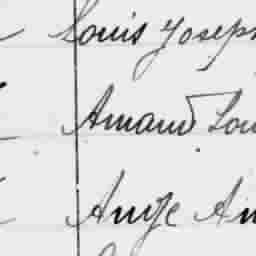 Louis Joseph
Amand Lou
Ange Ai